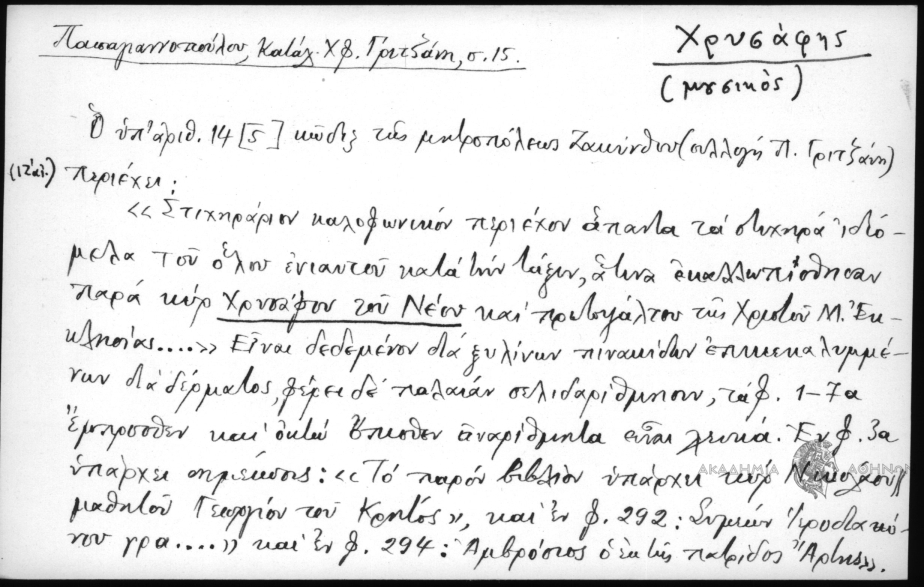 Παπαγιαννοπούλου, Κατάλ. Χφ. Γριτζάνη, σ. 15.
Χρυσάφης
(μουσικὸς)
Ὁ ὑπ' ἀριθ. 14 [5] κῶδιξ τῆς μητροπόλεως Ζακύνθου (συλλογὴ Π. Γριτζάνη)
περιέχει:
«Στιχηράριον καλοφωνικόν περιέχον ἅπαντα τὰ στιχηρὰ ἰδιό-
μελα τοῦ ὅλου ἐνιαυτοῦ κατὰ τὴν τάξιν, ἅτινα ἐκαλλωπίσθησαν
παρὰ κὺρ Χρυσάφου τοῦ Νέου καὶ πρωτοψάλτου τῆς Χριστοῦ Μ. Ἐκ-
κλησίας....» Εἶναι δεδεμένον διὰ ξυλίνων πινακίδων ἐπικεκαλυμμέ-
νων διὰ δέρματος, φέρει δὲ παλαιὰν σελιδαρίθμησιν, τὰ φ. 1-7α
ἔμπροσθεν καὶ ὀκτὼ ὄπισθεν ἀναρίθμητα εἶναι λευκά. Ἐν φ. 3α
ὑπάρχει σημείωσις: «Τὸ παρὸν βιβλίον ὑπάρχει κὺρ Νικολάου
μαθητοῦ Γεωργίου τοῦ Κρητός», καὶ ἐν φ. 292: Συμεὼν
γρα....» καὶ ἐν φ. 294: Ἀμβρόσιος ὁ ἐκ τῆς πατρίδος Ἄρτης».
ΑΚΑΔΗΜΙΑ ΑΘΗΝΩΝ